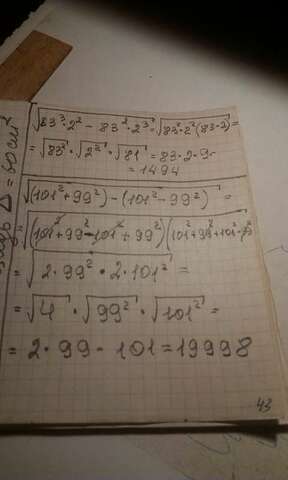 √83³·2² − 83²·2³ = √83²·2²(83-2) =
= √83² · √2² · √81 = 83·2·9=
= 1494
√(101²+99²)-(101²-99²) =
= √(101²+99²-101²+99²)(101²+99²+101²-99²)
= √2·99² · 2·101² =
= √4 · √99² · √101² =
= 2·99-101=19998
= 50 см²
43